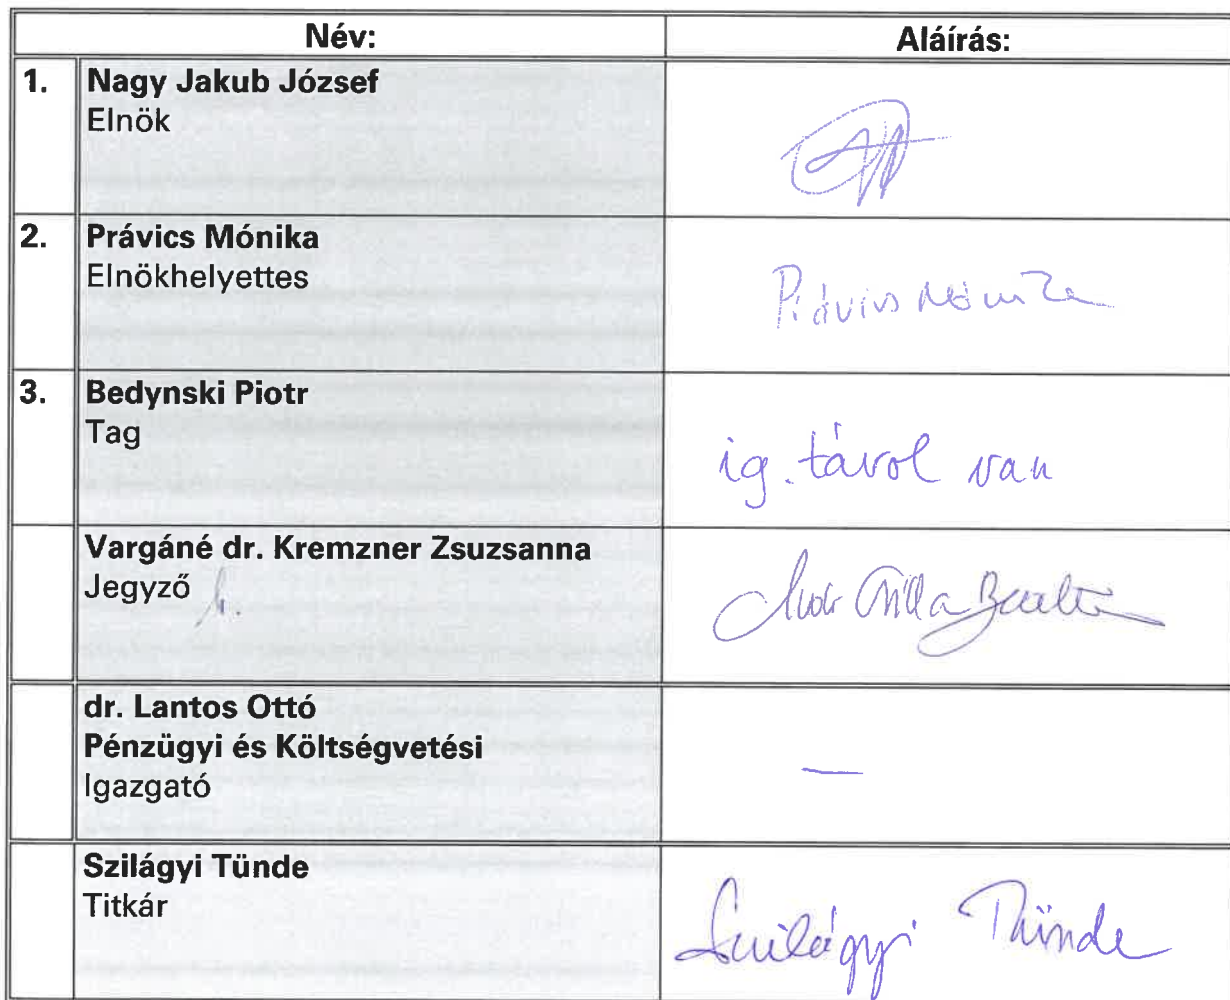 Név: Aláírás:
1. Nagy Jakub József
Elnök
2. Právics Mónika
Elnökhelyettes
Právics Mónika
3. Bedynski Piotr
Tag
ig. távol van
Vargáné dr. Kremzner Zsuzsanna
Jegyző h.
dr. Lantos Ottó
Pénzügyi és Költségvetési
Igazgató
—
Szilágyi Tünde
Titkár
Szilágyi Tünde